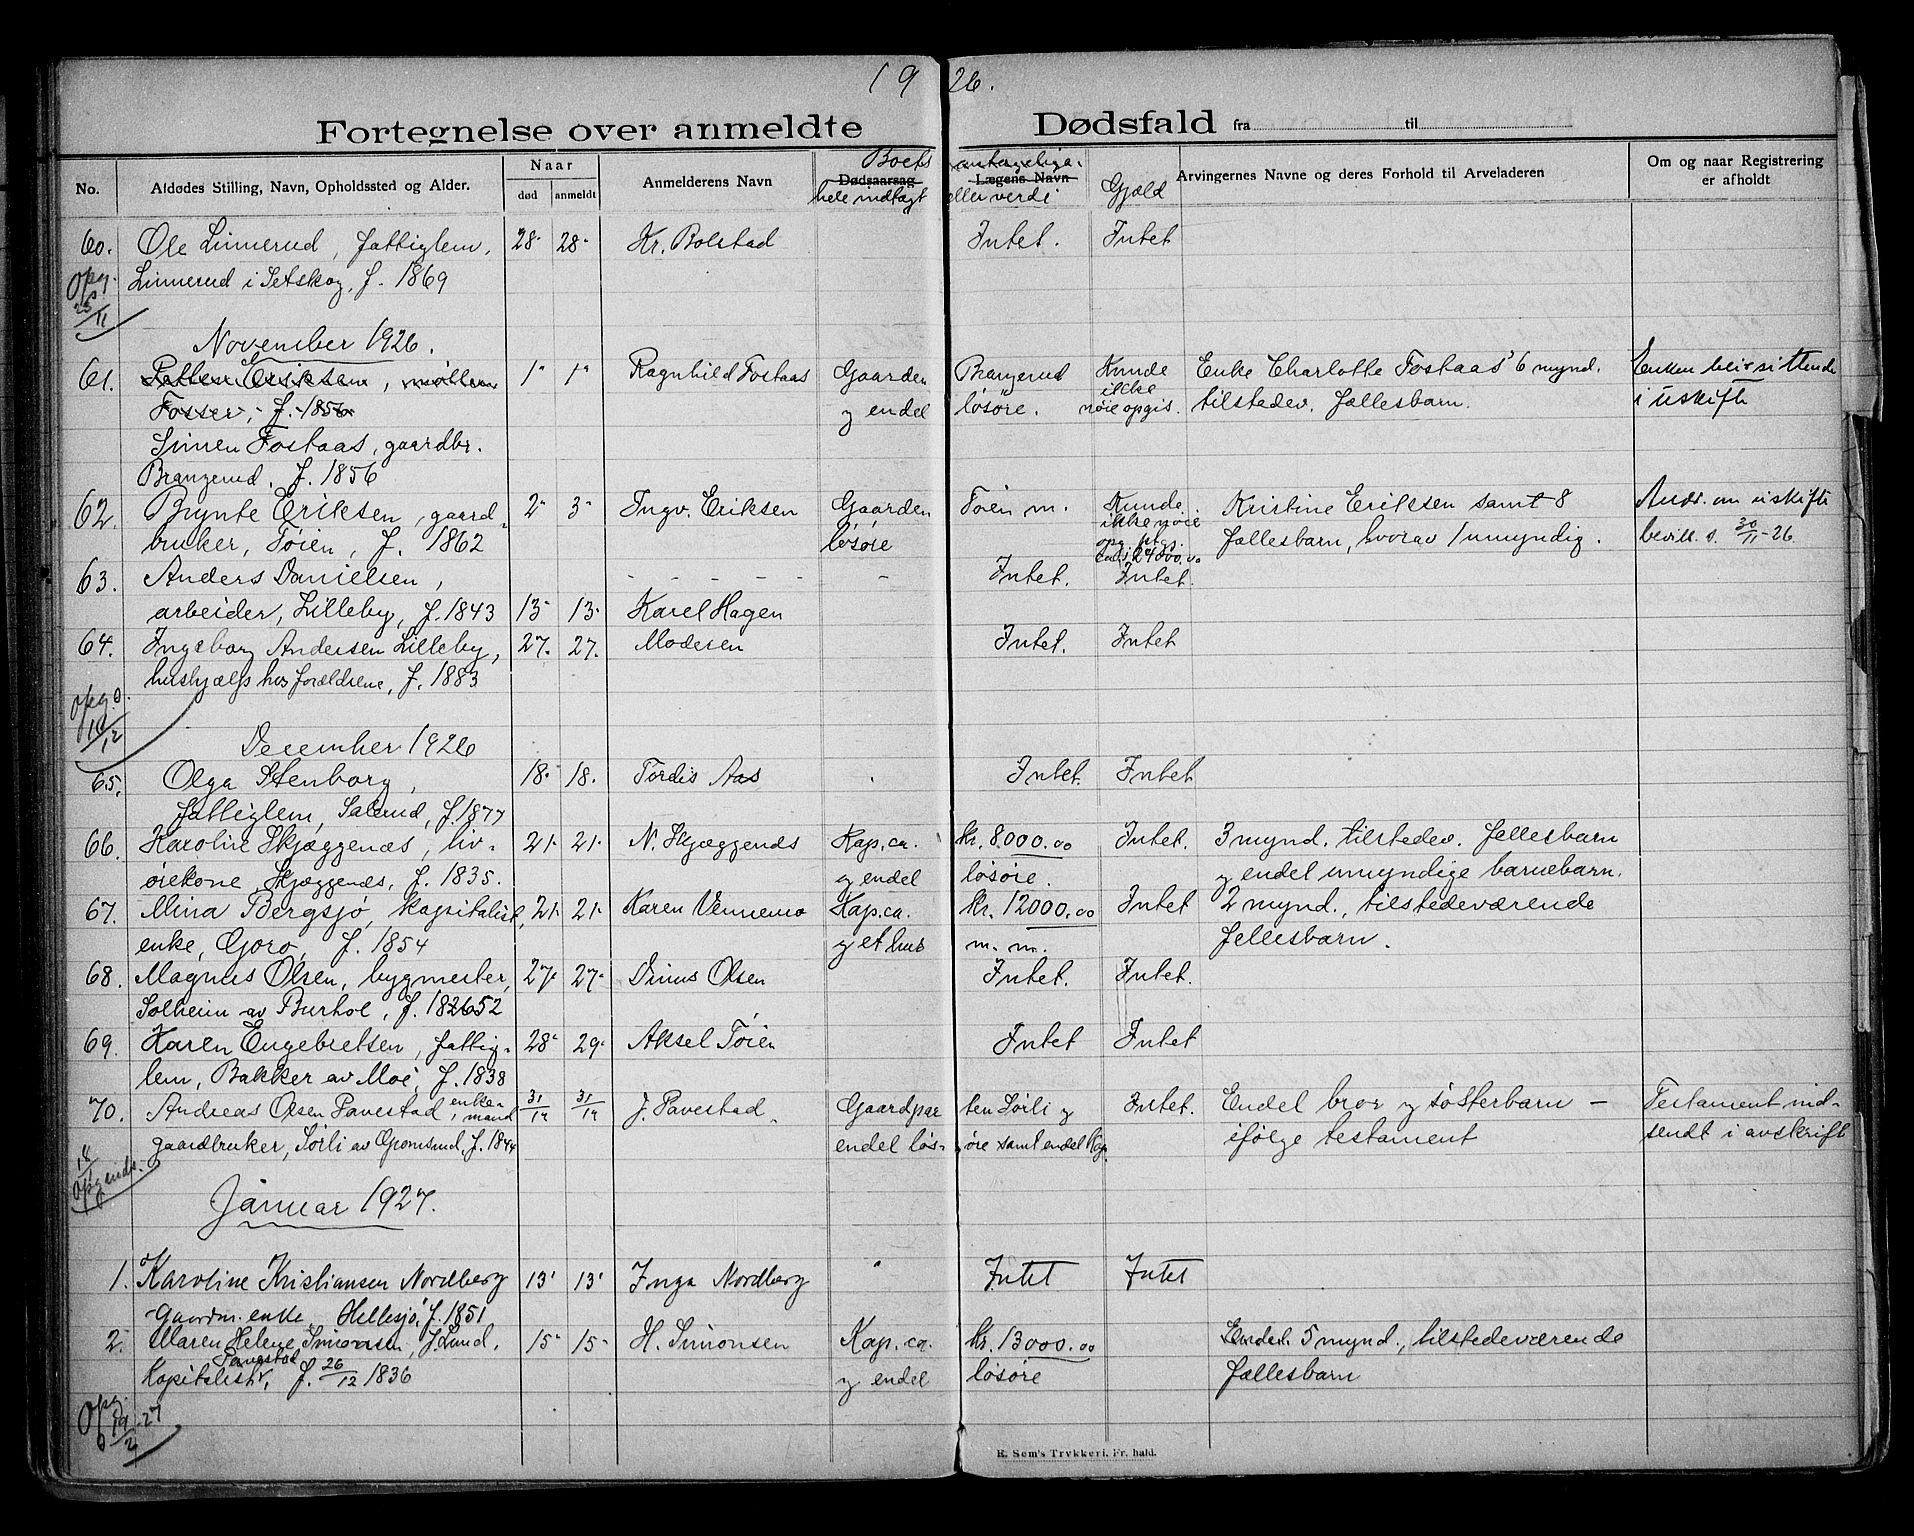 1926.
Fortegnelse over anmeldte Dødsfald fra til
No. Afdødes Stilling, Navn, Opholdssted og Alder. Naar død anmeldt Anmelderens Navn Dødsaarsag Lægens Navn Arvingernes Navne og deres Forhold til Arveladeren Om og naar Registrering er afholdt
Boets antagelige
hele indtægt eller verdi Gjæld
60. Ole Linnerud, fattiglem, 28- 28- Kr. Bolstad Intet. Intet
Linnerud i Setskog, f. 1869
Opg. 25/11
November 1926.
61. Petter Eriksen, møller 1- 1- Ragnhild Fostaas Gaarden Brangerud Kunde Enke Charlotte Fostaas' 6 mynd. Enken beir sittende
Fosser, f. 1856 y endel løsøre. ikke nøie opgis. tilstedev. fællesbarn. i uskifte
Simen Fostaas, gaardbr.
Brangerud, f. 1856
62. Bynte Eriksen, gaard- 2- 3- Ingv. Eriksen Gaarden Tøien m. Kunde Kristine Eriksen samt 8 Andr. om uskifte
bruker, Tøien, f. 1862 løsøre ikke nøie opg. 24000.00 fællesbarn, hvorav 1 umyndig. bevill. d. 30/11-26.
63. Anders Danielsen, - - - - - - - Intet. Intet.
arbeider, Lilleby, f. 1843 13- 13- Karel Hagen
64. Ingeborg Andersen Lilleby, 27. 27. Moderen Intet. Intet
hushjælp hos forældrene, f. 1883
Opg. 16/12
December 1926
65. Olga Stenborg, 18- 18. Tordis Aas Intet. Intet
fattiglem, Salerud, f. 1877
66. Karoline Skjæggenæs, liv- 21- 21- N. Skjæggenæs Kap. ca. kr. 8000.00 Intet. 3 mynd. tilstedev. fellesbarn
ørekone, Skjæggenæs, f. 1835. y endel løsøre. y endel umyndige barnebarn.
67. Mina Bergsjø, kapitalist, 21- 21- Karen Vennemo Kap. ca. kr. 12000.00 Intet 2 mynd., tilstedeværende
enke, Goro, f. 1854 y et hus m. m. fellesbarn.
68. Magnus Olsen, bygmester, 27- 27- Dinus Olsen Intet. Intet.
Solheim av Burhol, f. 182652
69. Karen Engebretsen, fattig- 28- 29- Aksel Tøien Intet Intet
lem, Bakker av Moe, f. 1838
70. Andreas Olsen Pavestad, enke- mand 31/12 31/12 J. Pavestad Gaardpar ten Sørli y Intet. Endel bror y søsterbarn - Testament ind-
gaardbruker, Sørli av Gromsrud, f. 1844 endel løs- øre samt endel Kap. ifølge testament sendt i avskrift
18/1 Opg ends.
Januar 1927.
1. Karoline Kristiansen Nordberg 13' 13' Inga Nordberg " Intet Intet
Gaardm. enke, Hellesjø, f. 1851
2. Maren Helene Simonsen, f. Lund, 15- 15- H. Simonsen Kap. ca. kr. 13000.00 Endel 5 mynd., tilstedeværende
Kapitalist, Pavestad f. 26/12 1836 y endel løsøre fællesbarn
Opg. 19/2-27
E. Sem's Trykkeri, Fr. hald.